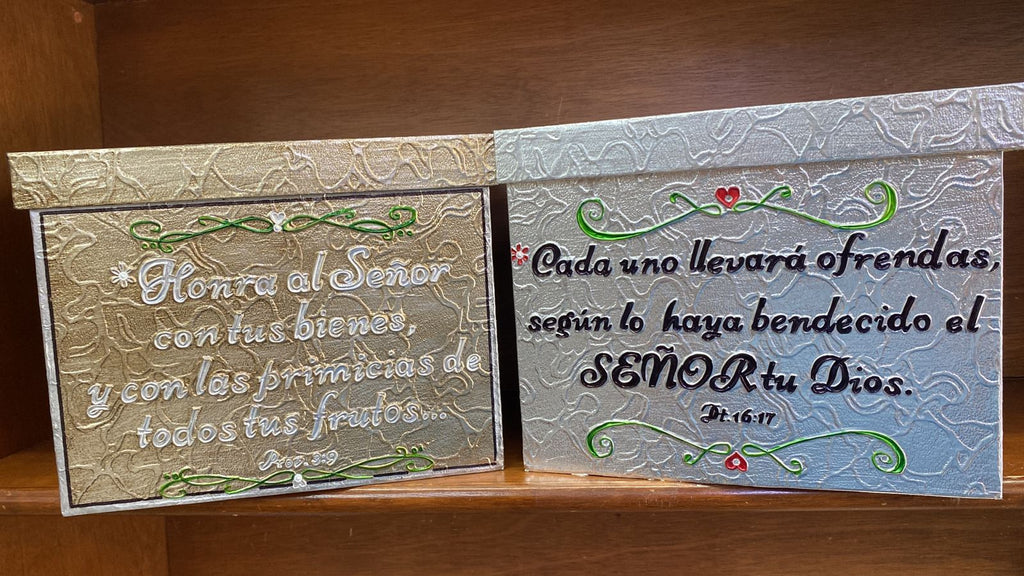 *Honra al Señor
con tus bienes,
y con las primicias de
todos tus frutos...
Prov. 3:9
*Cada uno llevará ofrendas,
según lo haya bendecido el
SEÑOR tu Dios.
Dt. 16:17